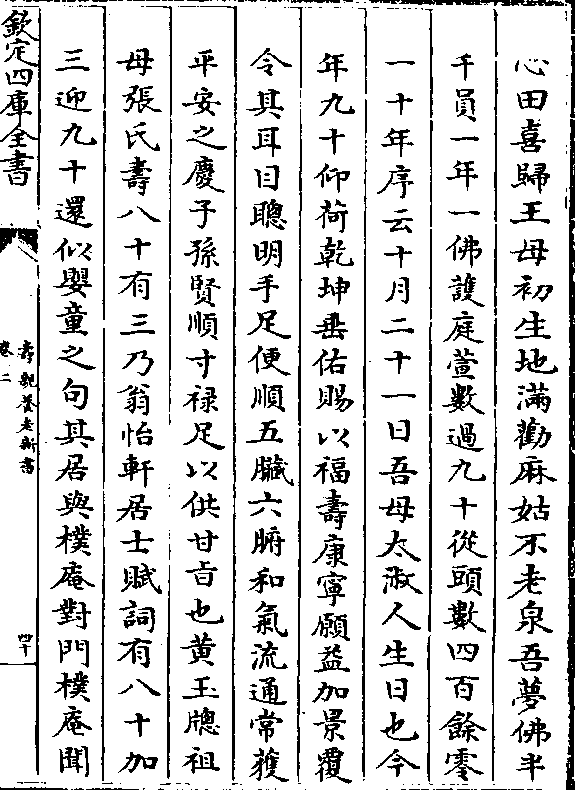 心田喜歸王母初生地滿勸麻姑不老泉吾夢佛半
千員一年一佛護庭萱數過九十從頭數四百餘零
一十年序云十月二十一日吾母太淑人生日也今
年九十仰荷乾坤垂佑賜以福壽康寧願益加景覆
令其耳目聰明手足便順五臟六腑和氣流通常獲
平安之慶子孫賢順寸禄足以供甘旨也黄玉牕祖
母張氏壽八十有三乃翁怡軒居士賦詞有八十加
三迎九十還似嬰童之句其居與樸庵對門樸庵聞
欽定四庫全書
壽親養老新書
卷二
四十